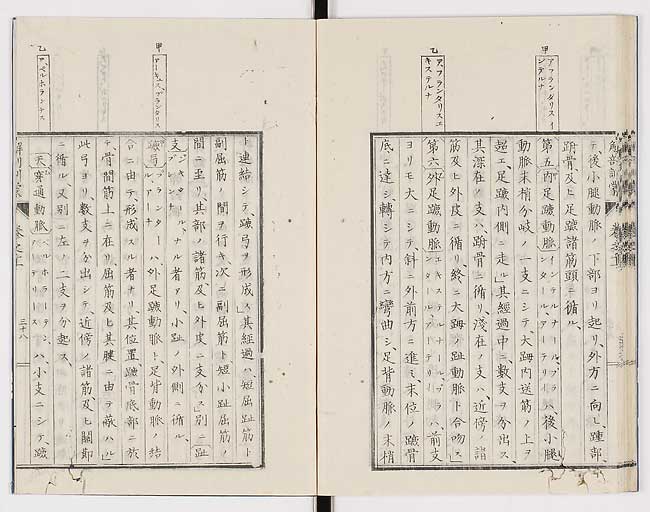 甲
アフランタリスイ
ンテルナ
乙
ア、フランタリスエ
キステルナ
テ後小腿動脈ノ下部ヨリ起リ、外方ニ向ヒ、踵部、
跗骨、及ヒ足蹠諸筋頭ニ循ル、
第五内足蹠動脈インテルナール、プラ
ンタール、アーテリーハ、後小腿
動脈末梢分岐ノ一支ニシテ大踇内送筋ノ上ヲ
超エ、足蹠内側ニ走ル、其經過中ニ、數支ヲ分出ス、
其深在ノ支ハ、跗骨ニ循リ、淺在ノ支ハ、近傍ノ諸
筋及ヒ外皮ニ循リ終ニ大踇ノ趾動脈ト合吻ス、
第六外足蹠動脈エキステルナール、プラ
ンタール、アーテリーハ、前支
ヨリモ大ニシテ、斜ニ外前方ニ進ミ末位ノ蹠骨
底ニ達シ、轉シテ内方ニ彎曲シ、足背動脈ノ末梢
甲
アーキュス、プランタリス
乙
ト連結シテ、蹠弓ヲ形成ス、其經過ハ短屈趾筋ト
副屈筋ノ間ヲ行キ、次ニ副屈筋ト短小趾屈筋ノ
間ニ至リ、其部ノ諸筋及ヒ外皮ニ支分ス、別ニ趾
支ナル者アリ、小趾ノ外側ニ循ル、
蹠弓プランター
ル、アーチハ、外足蹠動脈ト、足背動脈ノ結
合ニ由テ、形成スル者ナリ、其位置蹠骨底部ニ於
テ、骨間筋上ニ在リ、屈筋及ヒ其腱ニ由テ蔽ハル、
此弓ヨリ、數支ヲ分出シテ、近傍ノ諸筋及ヒ關節
ニ循ル、又別ニ左ノ二支ヲ分起ス、
天穿通動脈ハ、小支ニシテ、蹠
三十八